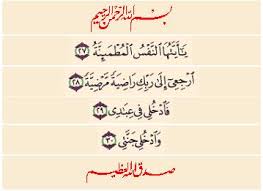 بِسْمِ اللَّهِ الرَّحْمَٰنِ الرَّحِيمِ
يَٰٓأَيَّتُهَا النَّفْسُ الْمُطْمَئِنَّةُ ٢٧
ارْجِعِىٓ إِلَىٰ رَبِّكِ رَاضِيَةً مَّرْضِيَّةً ٢٨
فَادْخُلِى فِى عِبَٰدِى ٢٩
وَادْخُلِى جَنَّتِى ٣٠
صدق الله العظيم